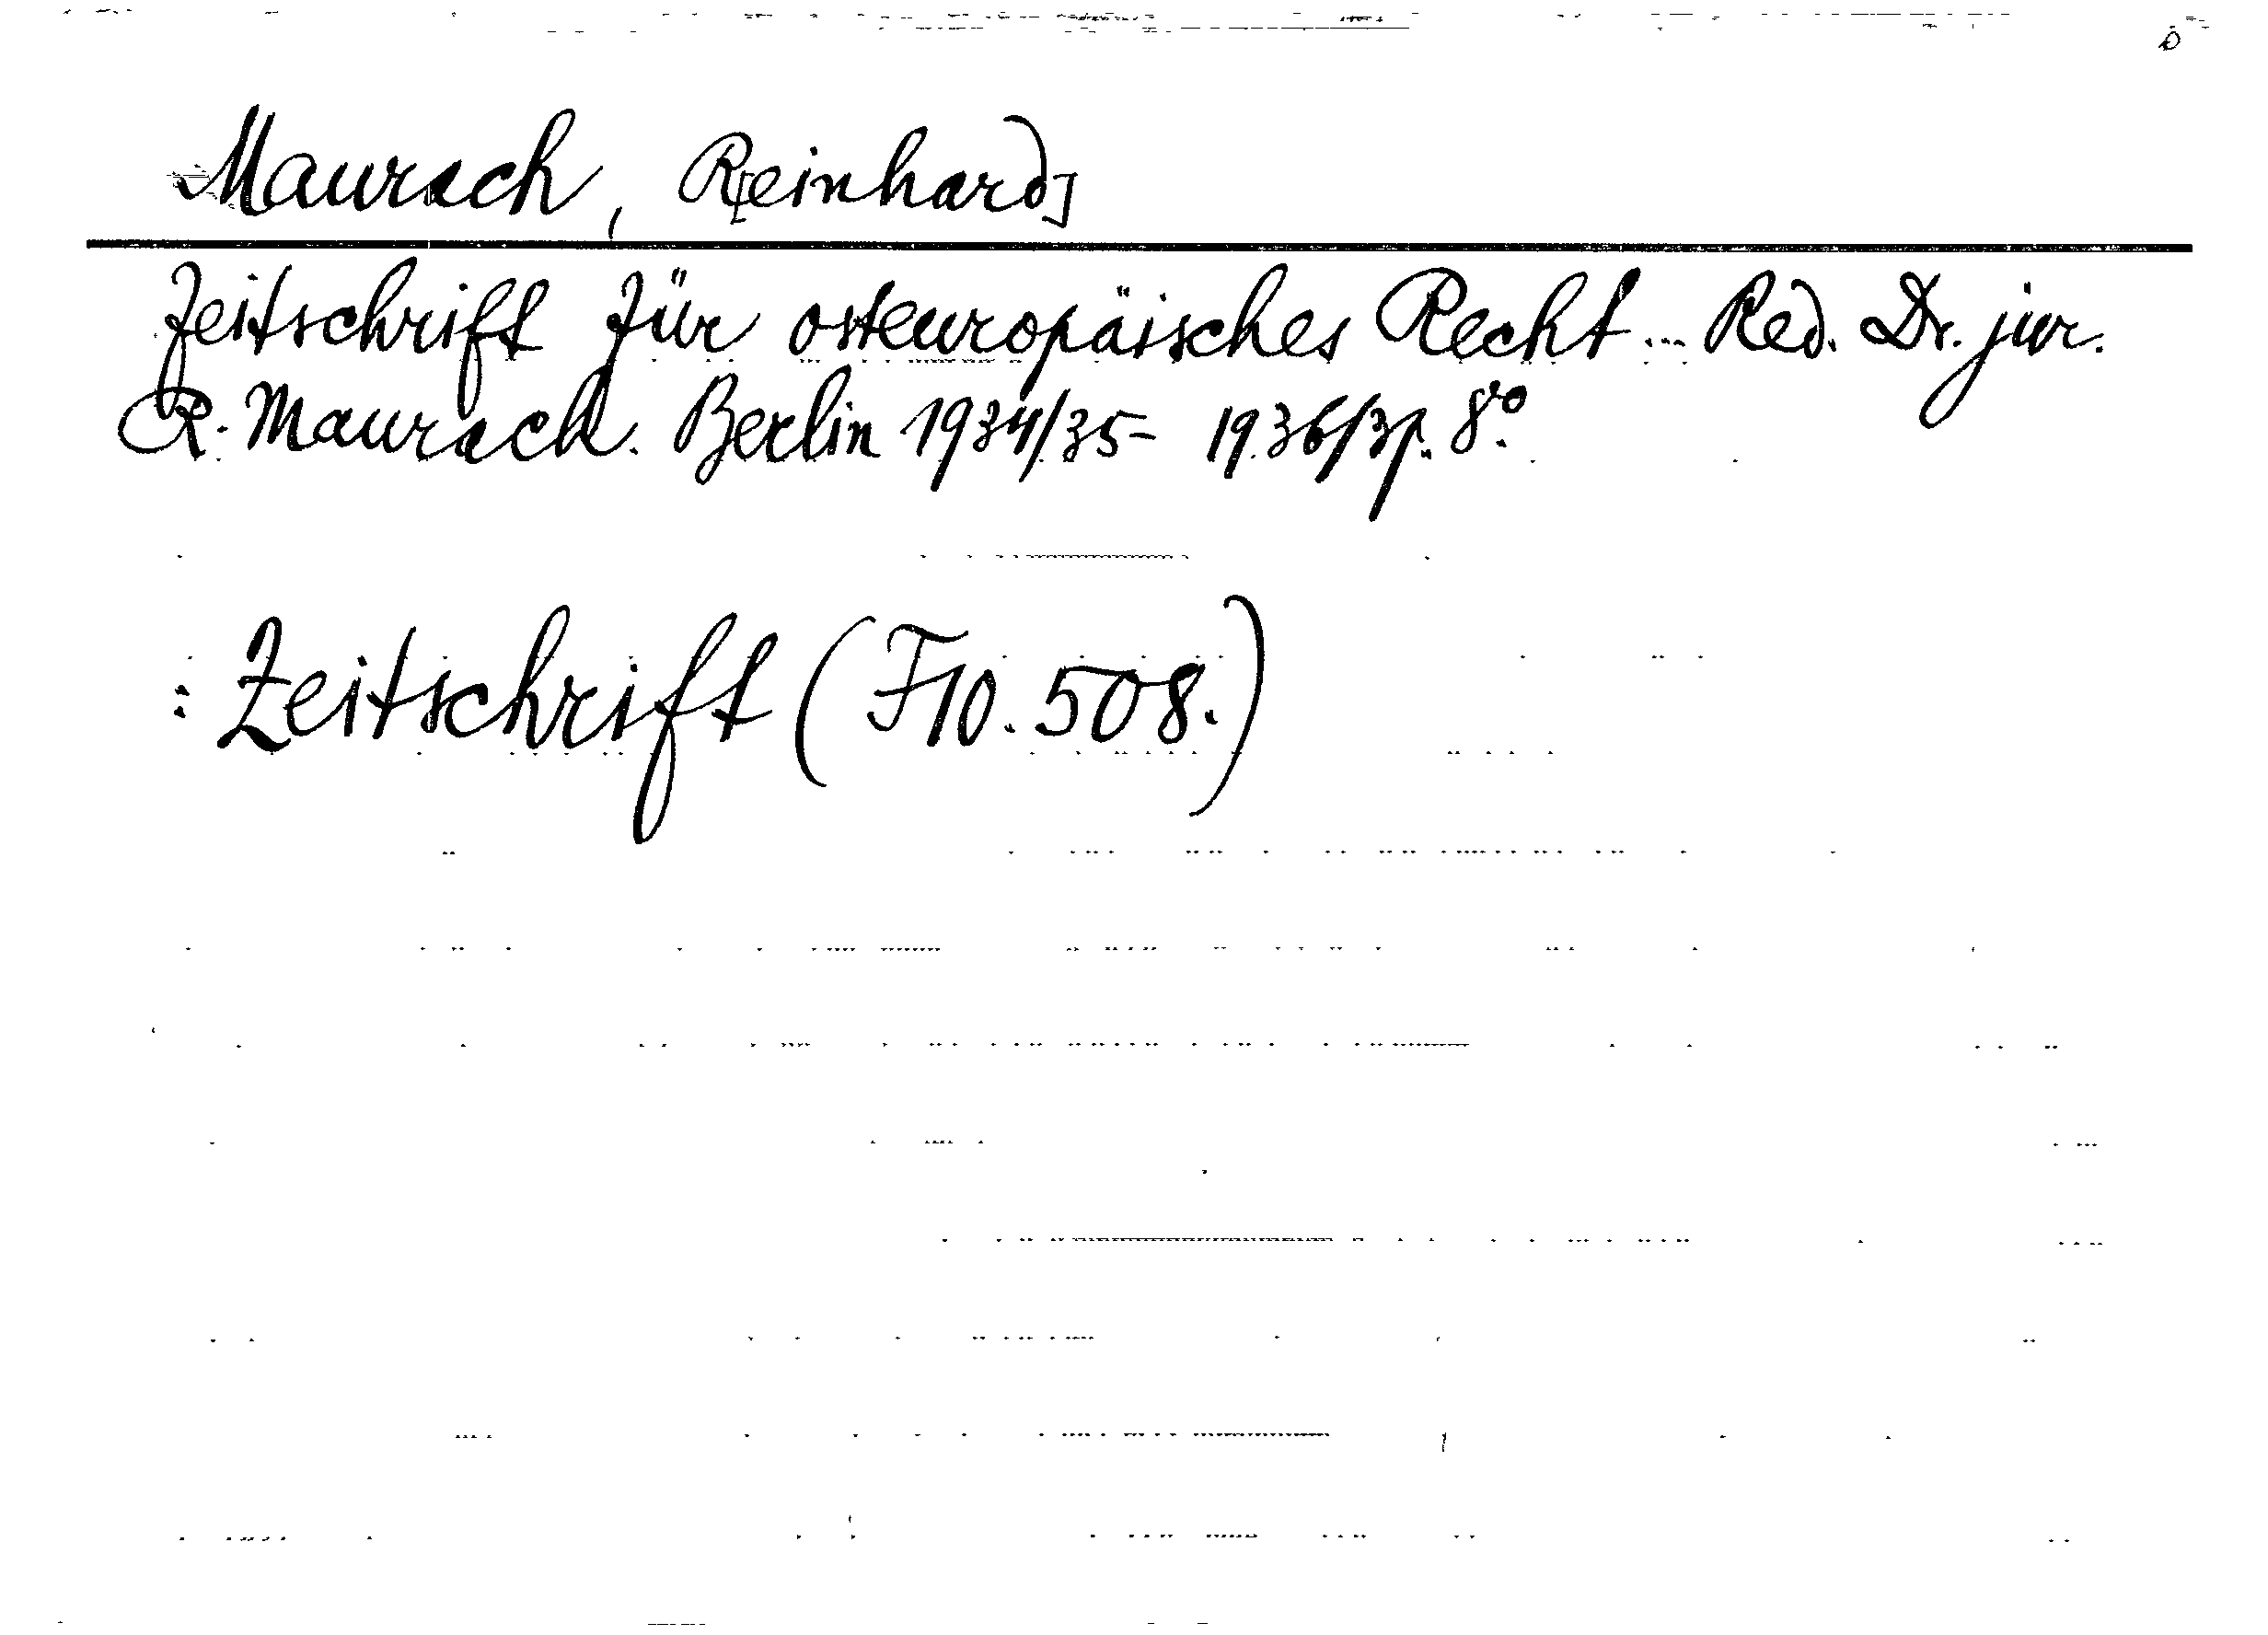 Maurach, R[einhard]
Zeitschrift für osteuropäisches Recht ... Red. Dr. jur.
R. Maurach. Berlin 1934/35 - 1936/37. 8°.
: Zeitschrift (F10. 508.)